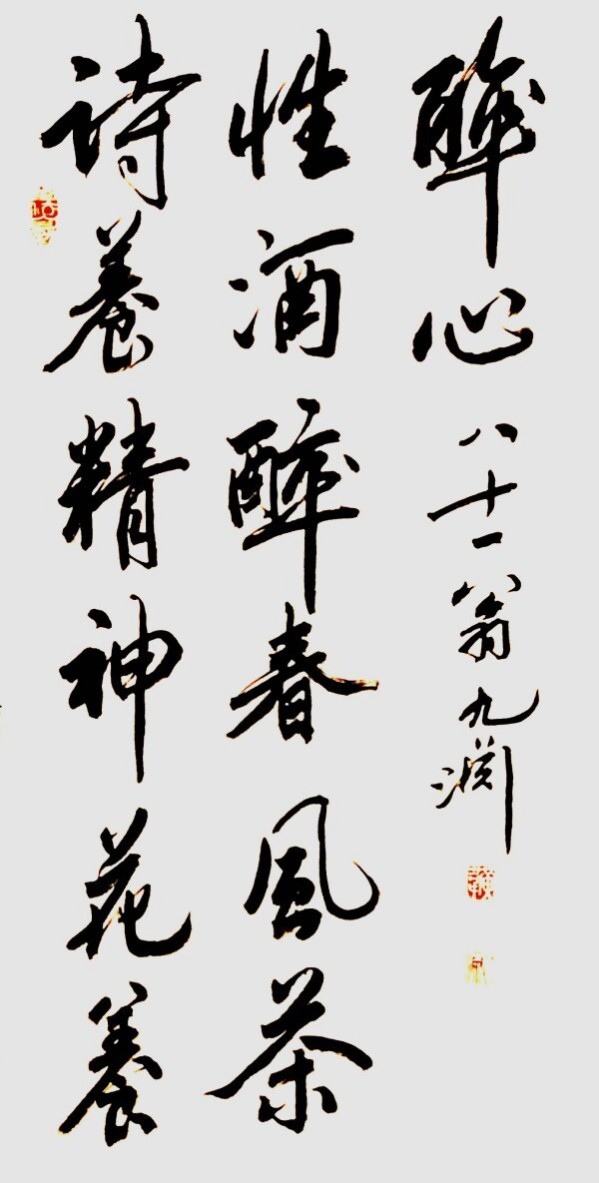 詩養精神花養
性酒醉春風茶
醉心
八十一翁九渊